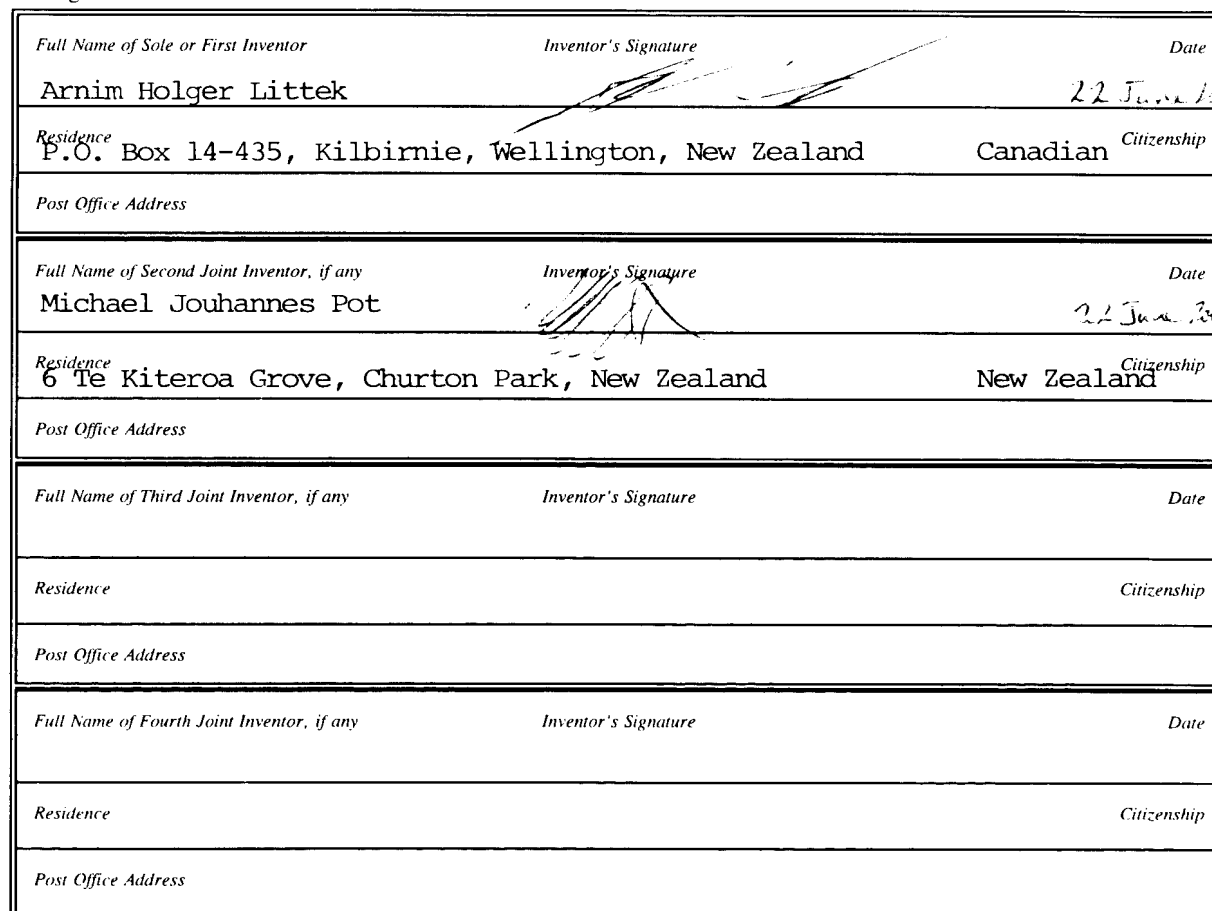 Full Name of Sole or First Inventor Inventor's Signature Date
Arnim Holger Littek 22 June
Residence Citizenship
P.O. Box 14-435, Kilbirnie, Wellington, New Zealand Canadian
Post Office Address
Full Name of Second Joint Inventor, if any Inventor's Signature Date
Michael Jouhannes Pot 22 June
Residence Citizenship
6 Te Kiteroa Grove, Churton Park, New Zealand New Zealand
Post Office Address
Full Name of Third Joint Inventor, if any Inventor's Signature Date
Residence Citizenship
Post Office Address
Full Name of Fourth Joint Inventor, if any Inventor's Signature Date
Residence Citizenship
Post Office Address